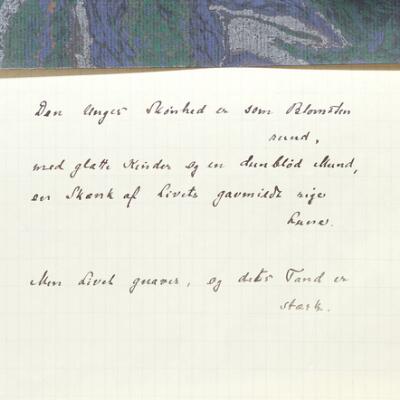 Den Unges Skønhed er som Blomsten
rund,
med glatte Kinder og en dunblød Mund,
en Skænk af Livets gavmildt rige
Lune.
Men Livet gnaver, og dets Tand er
stærk.